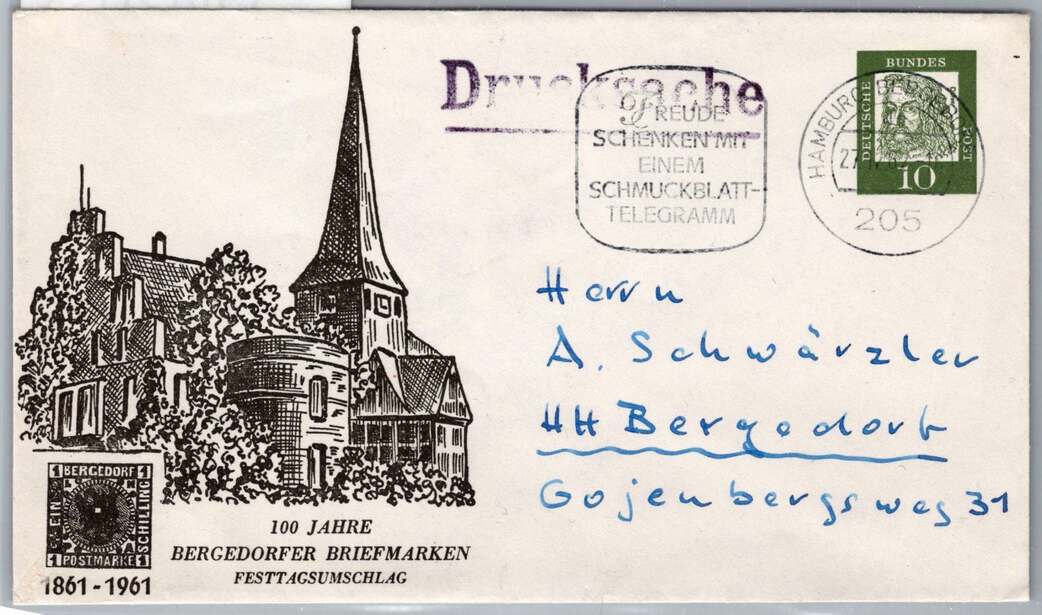 Drucksache
FREUDE
SCHENKEN MIT
EINEM
SCHMUCKBLATT-
TELEGRAMM
HAMBURG-BERGEDORF
205
BUNDES
DEUTSCHE
POST
10
Herrn
A. Schwärzler
HH Bergedorf
Gojenbergsweg 31
BERGEDORF
EIN
SCHILLING
POSTMARKE
1 1 1 1
1861-1961
100 JAHRE
BERGEDORFER BRIEFMARKEN
FESTTAGSUMSCHLAG